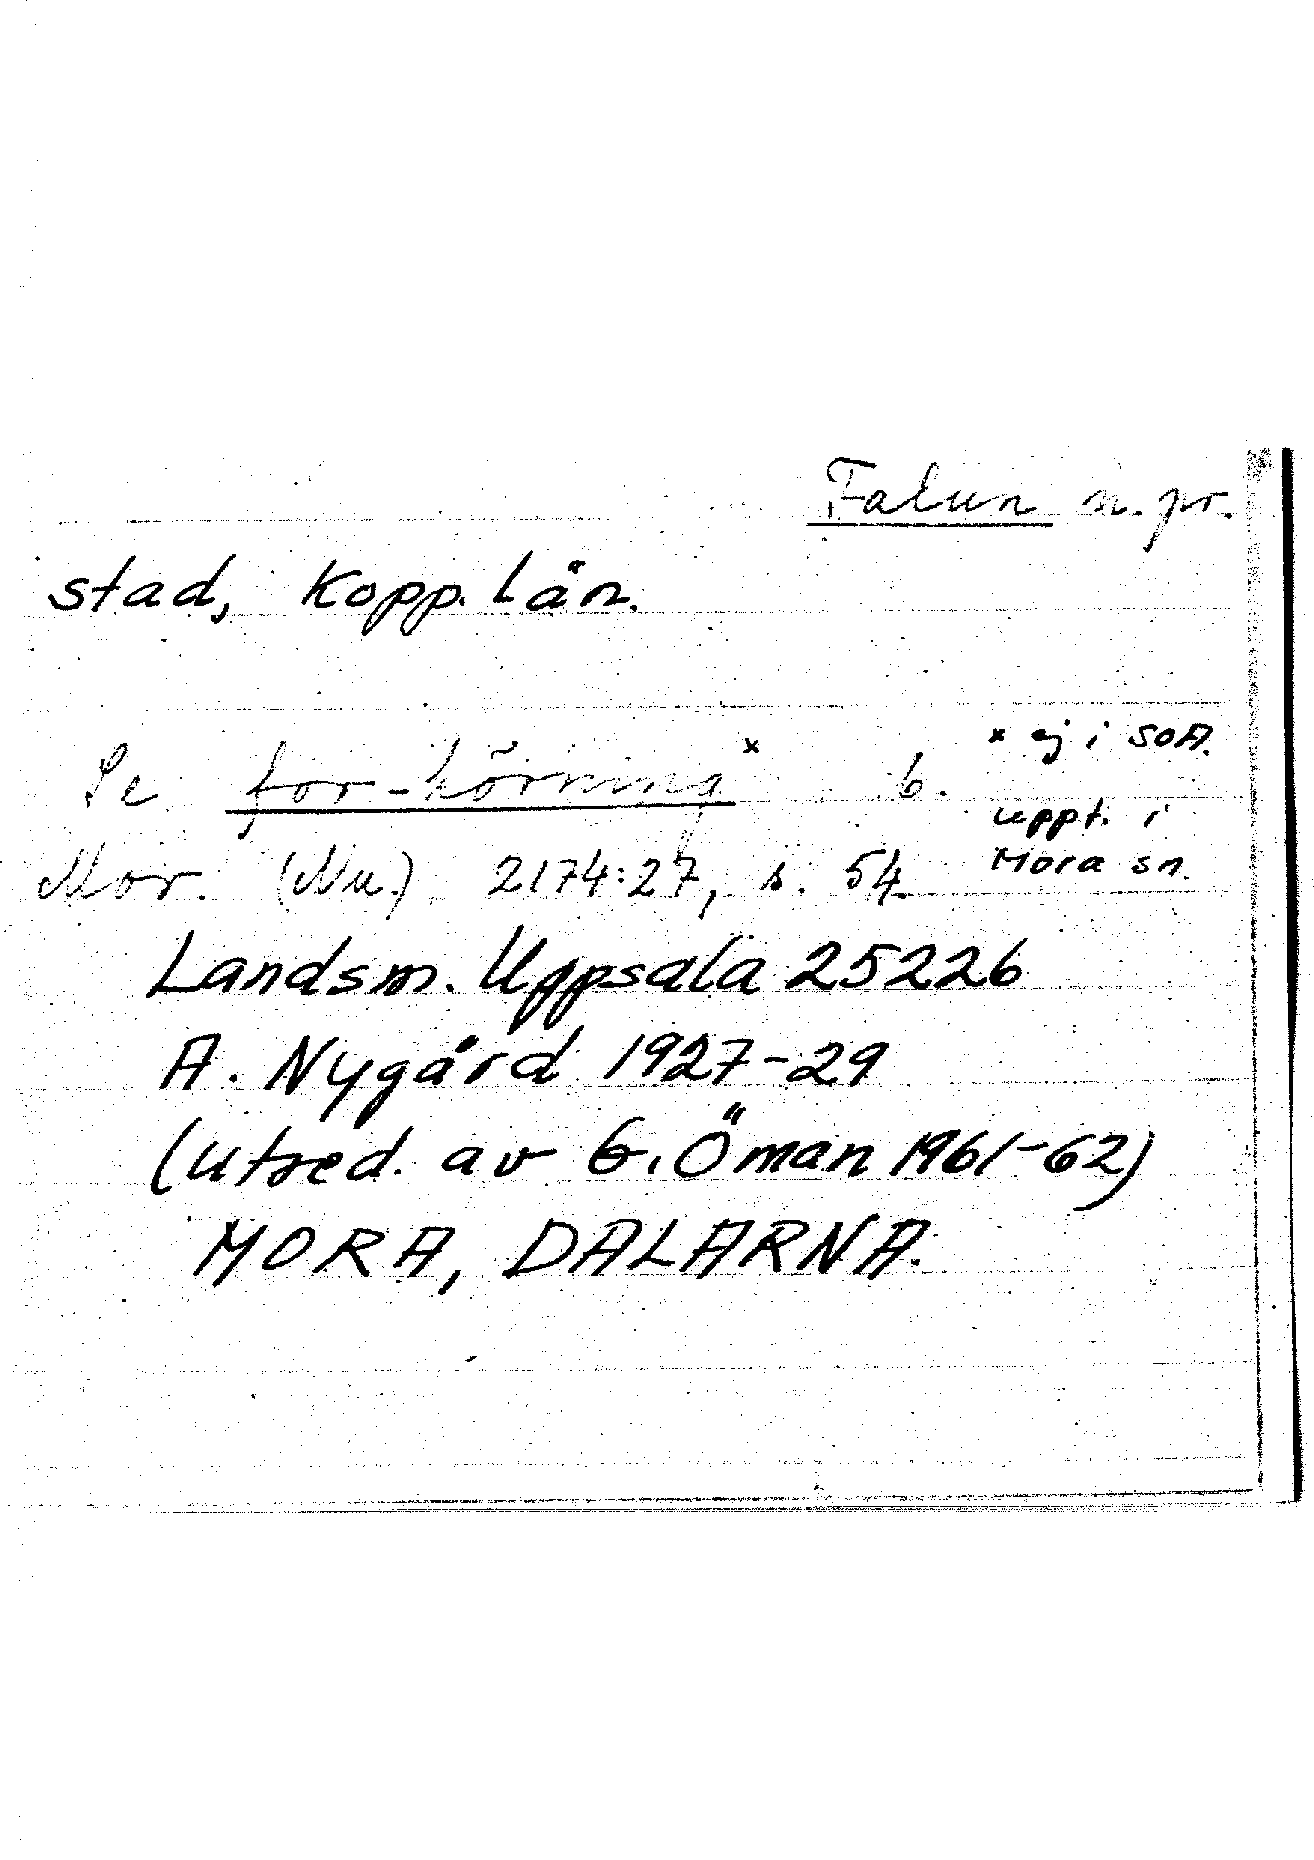 Falun n.pr.
stad, Kopp. län.
Se for-körning x 6.
x ej i SOA.
uppt. i
Mora sn.
Mor. (Nu.) 2174:27, s. 54
Landsm. Uppsala 25226
A. Nygård 1927-29
(utred. av G. Öman 1961-62)
MORA, DALARNA.